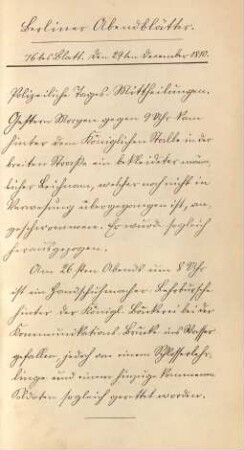 Berliner Abendblätter.
76tes Blatt. Den 29ten December 1810.
Polizeiliche Tages-Mittheilungen.
Gestern Morgen gegen 9 Uhr kam
hinter dem Königlichen Stalle in der
breiten Straße ein bekleideter männ-
licher Leichnam, welcher noch nicht in
Verwesung übergegangen ist, an-
geschwommen. Er wurde sogleich
herausgezogen.
Am 26sten Abends um 8 Uhr
ist ein Handschuhmacher-Lehrbursche
hinter der Königl. Bäckerei bei der
Kommunikations-Brücke ins Wasser
gefallen, jedoch von einem Schlosserlehr-
linge und einem hinzugekommenen
Soldaten sogleich gerettet worden.